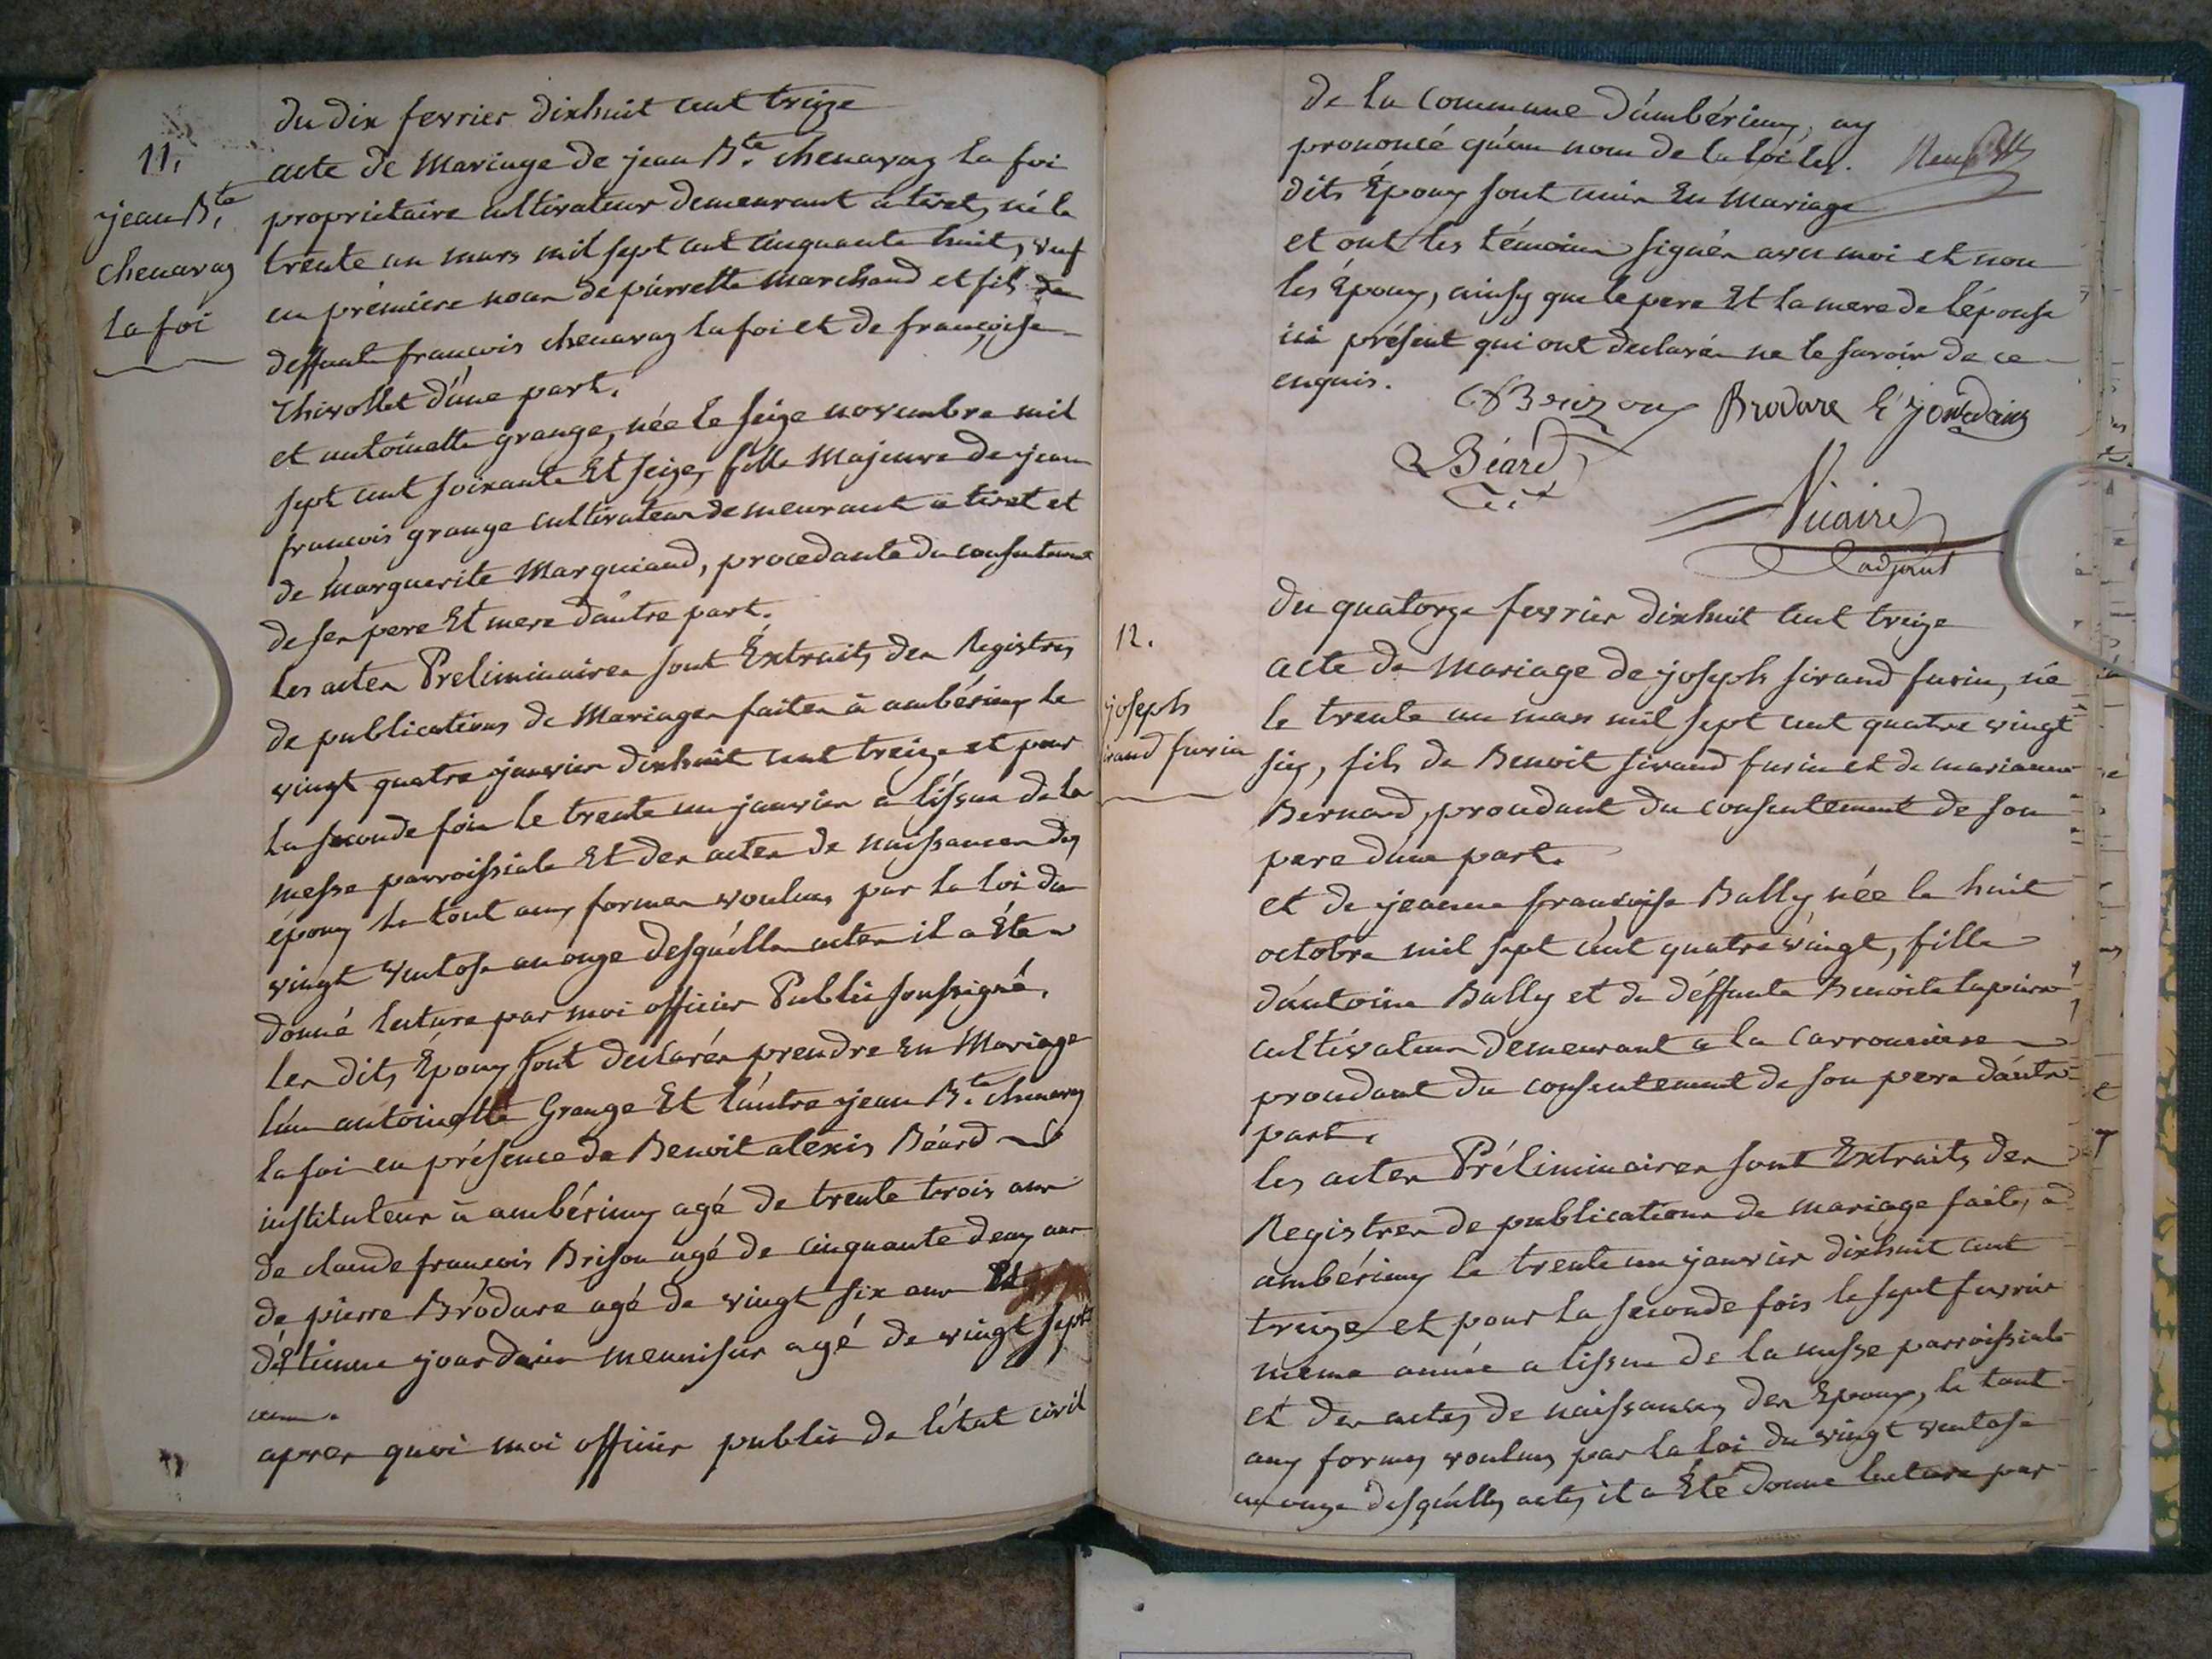 11.
jean B.te
chenavaz
la foi
du dix fevrier dixhuit cent treize
acte de Mariage de jean B.te chenavaz la foi
proprietaire cultivateur demeurant a tiret, né le
trente un mars mil sept cent cinquante huit, veuf
en prémiere noces de pierrette marchand et fils de
deffunt francois chenavaz la foi et de françoise
thivollet d'une part.
et antoinette grange, née le seize novembre mil
sept cent soixante Et seize, fille Majeure de jean
francois grange cultivateur demeurant a tiret et
de marguerite Marguiand, procedante du consentement
de ses pere Et mere d'autre part.
les actes Preliminaires sont Extraits des Registres
de publications de Mariages faites à ambérieux le
vingt quatre janvier dixhuit cent treize et pour
la seconde fois le trente un janvier a l'issue de la
messe parroissiale Et des actes de naissances des
époux le tout aux formes voulues par la loi du
vingt ventose an onze desquelles actes il a Été
donné lecture par moi officier Public soussigné.
les dits Époux sont declarés prendre En Mariage
l'un antoinette Grange Et l'autre jean B.te chenavaz
la foi en présence de Benoit alexis Béard
instituteur à ambérieux agé de trente trois ans
de claude francois Brison agé de cinquante deux ans
de pierre Brodare agé de vingt six ans Et
d'Etienne jourdain menuisier agé de vingt sept
ans.
apres quoi moi officier public de l'état civil
de la Commune d'ambérieux, ay
prononcé qu'au nom de la loi les.
dits Époux sont unis En mariage
et ont les témoins signés avec moi et non
les Époux, ainsy que le pere Et la mere de l'épouse
ici présent qui ont declarés ne le savoir de ce
enquis.
Brodare E jourdain
Béard
Vicaire
adjoint
12.
joseph
sirand furin
du quatorze fevrier dixhuit cent treize
acte de Mariage de joseph sirand furin, né
le trente un mars mil sept cent quatre vingt
six, fils de Benoit sirand furin et de marianne
Bernard, procedant du consentement de son
pere d'une part.
et de jeanne françoise Bally née le huit
octobre mil sept cent quatre vingt, fille
d'antoine Bally et de déffunte Benoite lapierre
cultivateur demeurant a la Carronniere
procedant du consentement de son pere d'autre
part.
les actes Préliminaires sont Extraits des
Registres de publications de mariage faites, a
ambérieux le trente un janvier dixhuit cent
treize et pour la seconde fois le sept fevrier
même année a l'issue de la messe parroissiale
et des actes de naissances des Epoux, le tout
aux formes voulues par la loi du vingt ventose
an onze desquelles actes il a Été donné lecture par